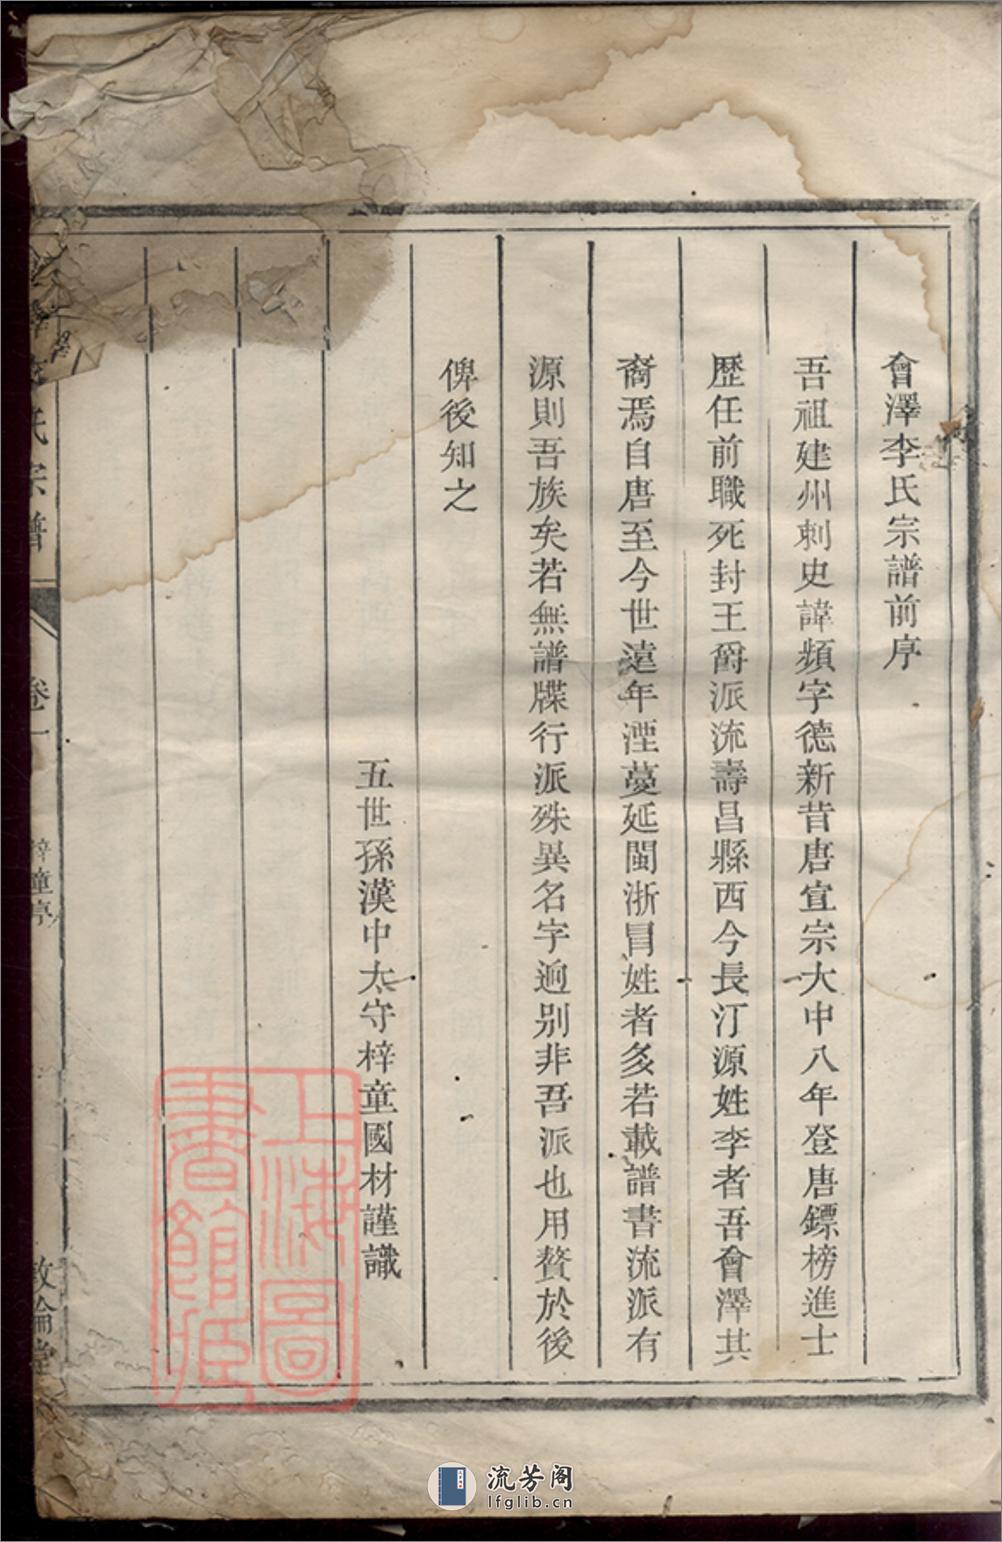 會澤李氏宗譜前序
吾祖建州刺史諱頻字德新昔唐宣宗大中八年登唐鏢榜進士
歷任前職死封王爵派流壽昌縣西今長汀源姓李者吾會澤其
裔焉自唐至今世遠年湮蔓延閩浙冒姓者多若載譜書流派有
源則吾族矣若無譜牒行派殊異名字逈別非吾派也用贅於後
俾後知之
五世孫漢中太守梓童國材謹識
氏宗譜
卷一
梓童序
敦倫堂
上海圖書館藏
流芳阁
lfglib.cn